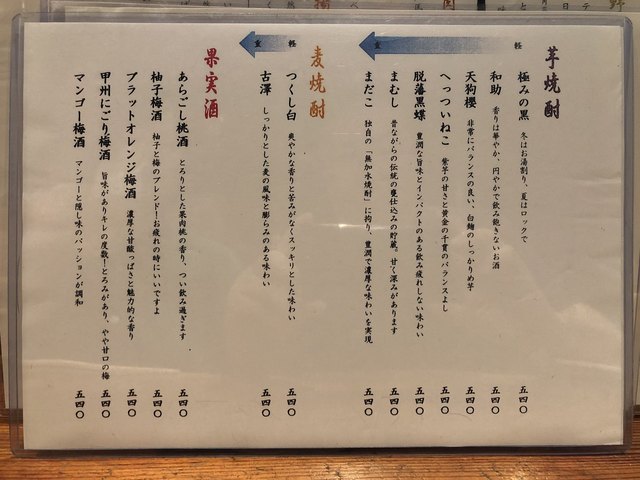 芋焼酎
軽 重
極みの黒 冬はお湯割り、夏はロックで 五四〇
和助 香りは華やか、円やかで飲み飽きないお酒 五四〇
天狗櫻 非常にバランスの良い、白麹のしっかりめ芋 五四〇
へっついねこ 紫芋の甘さと黄金の千貫のバランスよし 五四〇
脱藩黒蝶 豊潤な旨味とインパクトのある飲み疲れしない味わい 五四〇
まむし 昔ながらの伝統の甕仕込みの貯蔵。甘く深みがあります 五四〇
まだこ 独自の「無加水焼酎」に拘り、豊潤で濃厚な味わいを実現 五四〇
麦焼酎
軽 重
つくし白 爽やかな香りと苦みがなくスッキリとした味わい 五四〇
古澤 しっかりとした麦の風味と膨らみのある味わい 五四〇
果実酒
あらごし桃酒 とろりとした果肉桃の香り、つい飲み過ぎます 五四〇
柚子梅酒 柚子と梅のブレンド!お疲れの時にいいですよ 五四〇
ブラットオレンジ梅酒 濃厚な甘酸っぱさと魅力的な香り 五四〇
甲州にごり梅酒 旨味がありキレの度数!とろみがあり、やや甘口の梅 五四〇
マンゴー梅酒 マンゴーと隠し味のパッションが調和 五四〇